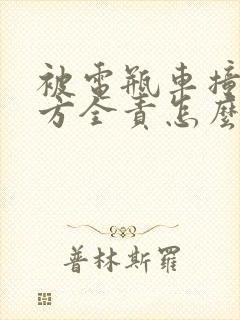 被電瓶車撞
方全責怎麼
普林斯羅